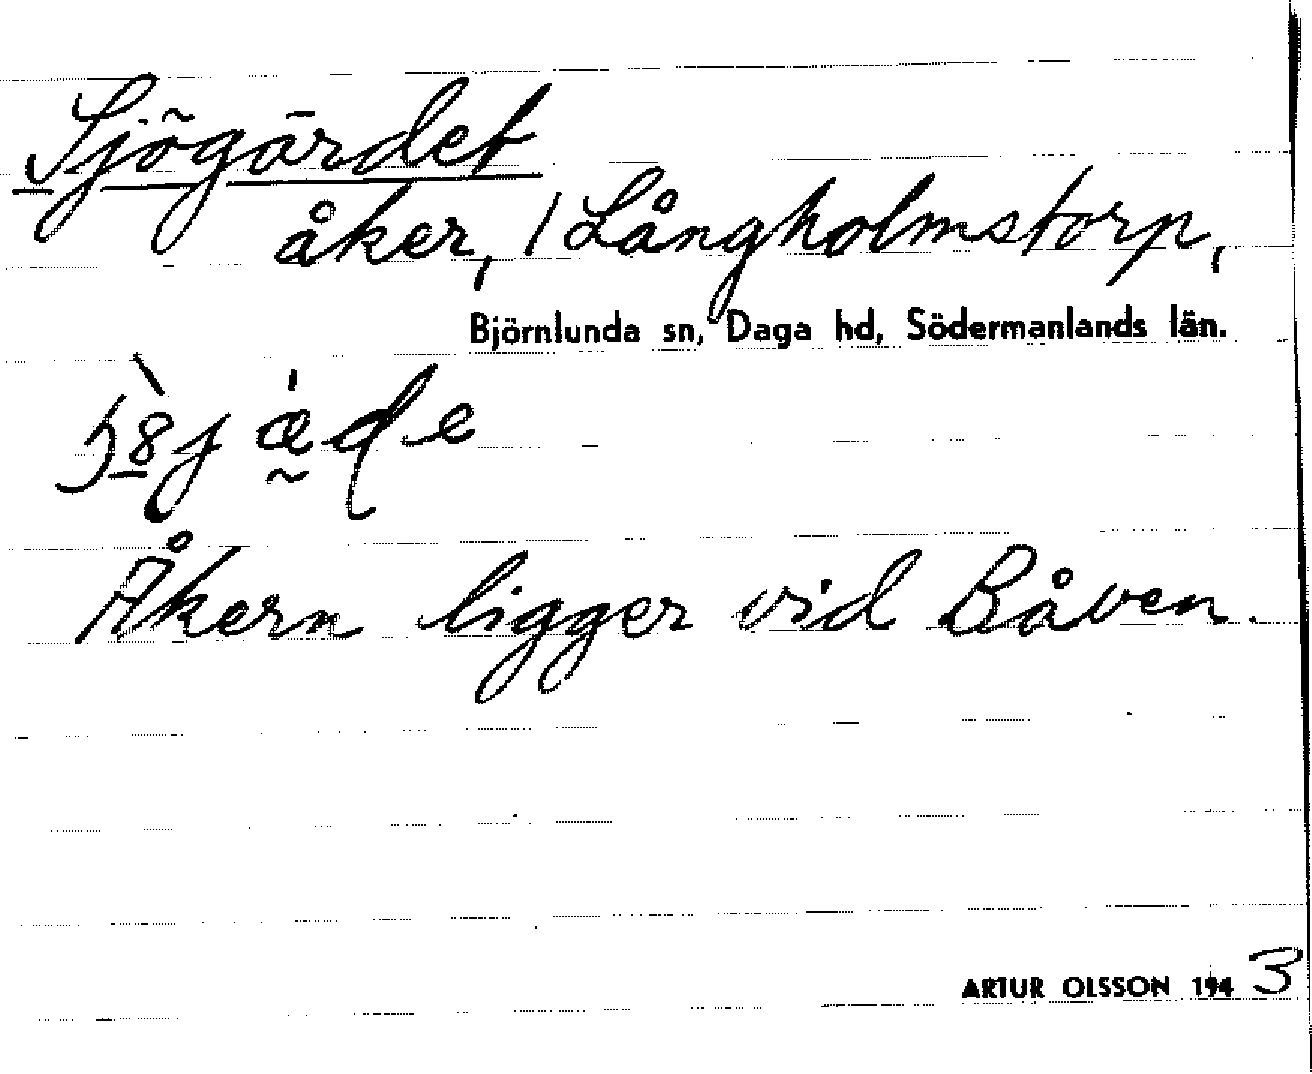 Sjögärdet
åker, 1 Långholmstorp,
Björnlunda sn, Daga hd, Södermanlands län.
Åkern ligger vid Båven.
ARTUR OLSSON 1943